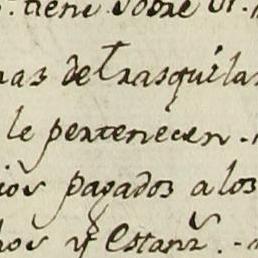 tiene sobre
nas de Trasquilas
le pertenecen.
ios pagados a los
hos y Estans.